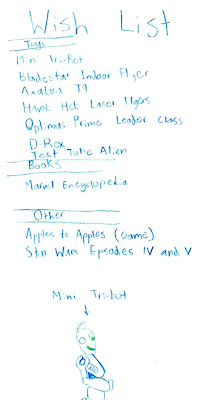 Wish List
Toys
Mini Tri-Bot
Bladestar Indoor Flyer
Axalara T9
Hawk Heli Laser Flyers
Optimus Prime Leader Class
D-Rex
Test Tube Alien
Books
Marvel Encyclopedia
Other
Apples to Apples (Game)
Star Wars Episodes IV and V
Mini Tri-bot